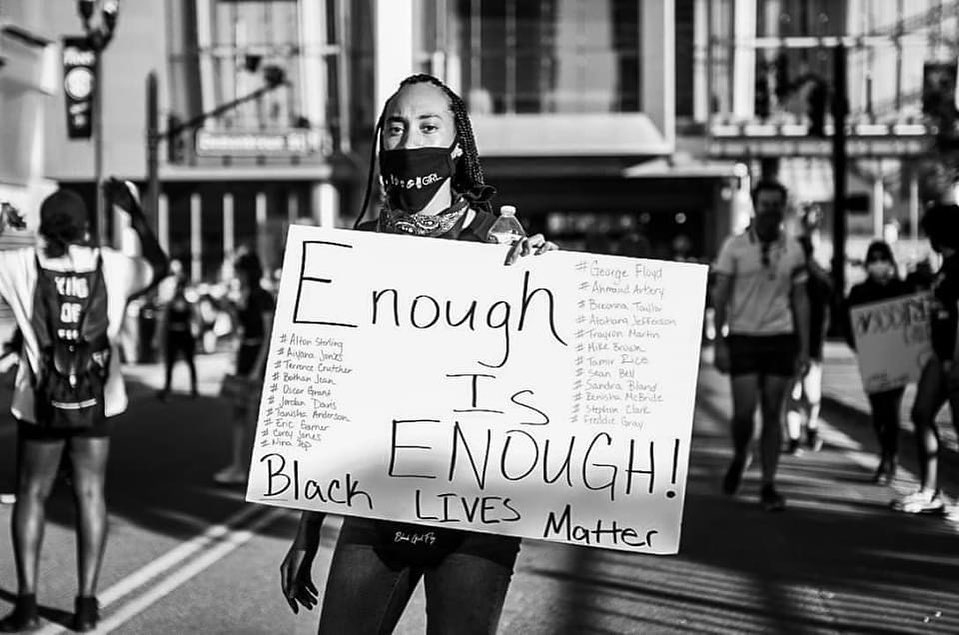 GIRL
Enough
Is
ENOUGH!
Black LIVES Matter
# Alton Sterling
# Aiyana Jones
# Terrence Crutcher
# Botham Jean
# Oscar Grant
# Jordan Davis
# Tanisha Anderson
# Eric Garner
# Corey Jones
# Nina Pop
# George Floyd
# Ahmaud Arbery
# Breonna Taylor
# Atatiana Jefferson
# Trayvon Martin
# Mike Brown
# Tamir Rice
# Sean Bell
# Sandra Bland
# Renisha McBride
# Stephon Clark
# Freddie Gray
Black Girl Fly
KING
OF